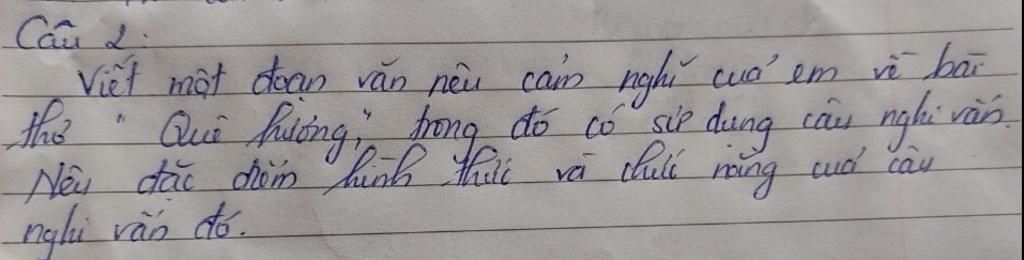 Câu 2:
Viết một đoạn văn nêu cảm nghĩ của em về bài
thơ " Quê hương", trong đó có sử dụng câu nghi vấn.
Nêu đặc điểm hình thức và chức năng của câu
nghi vấn đó.